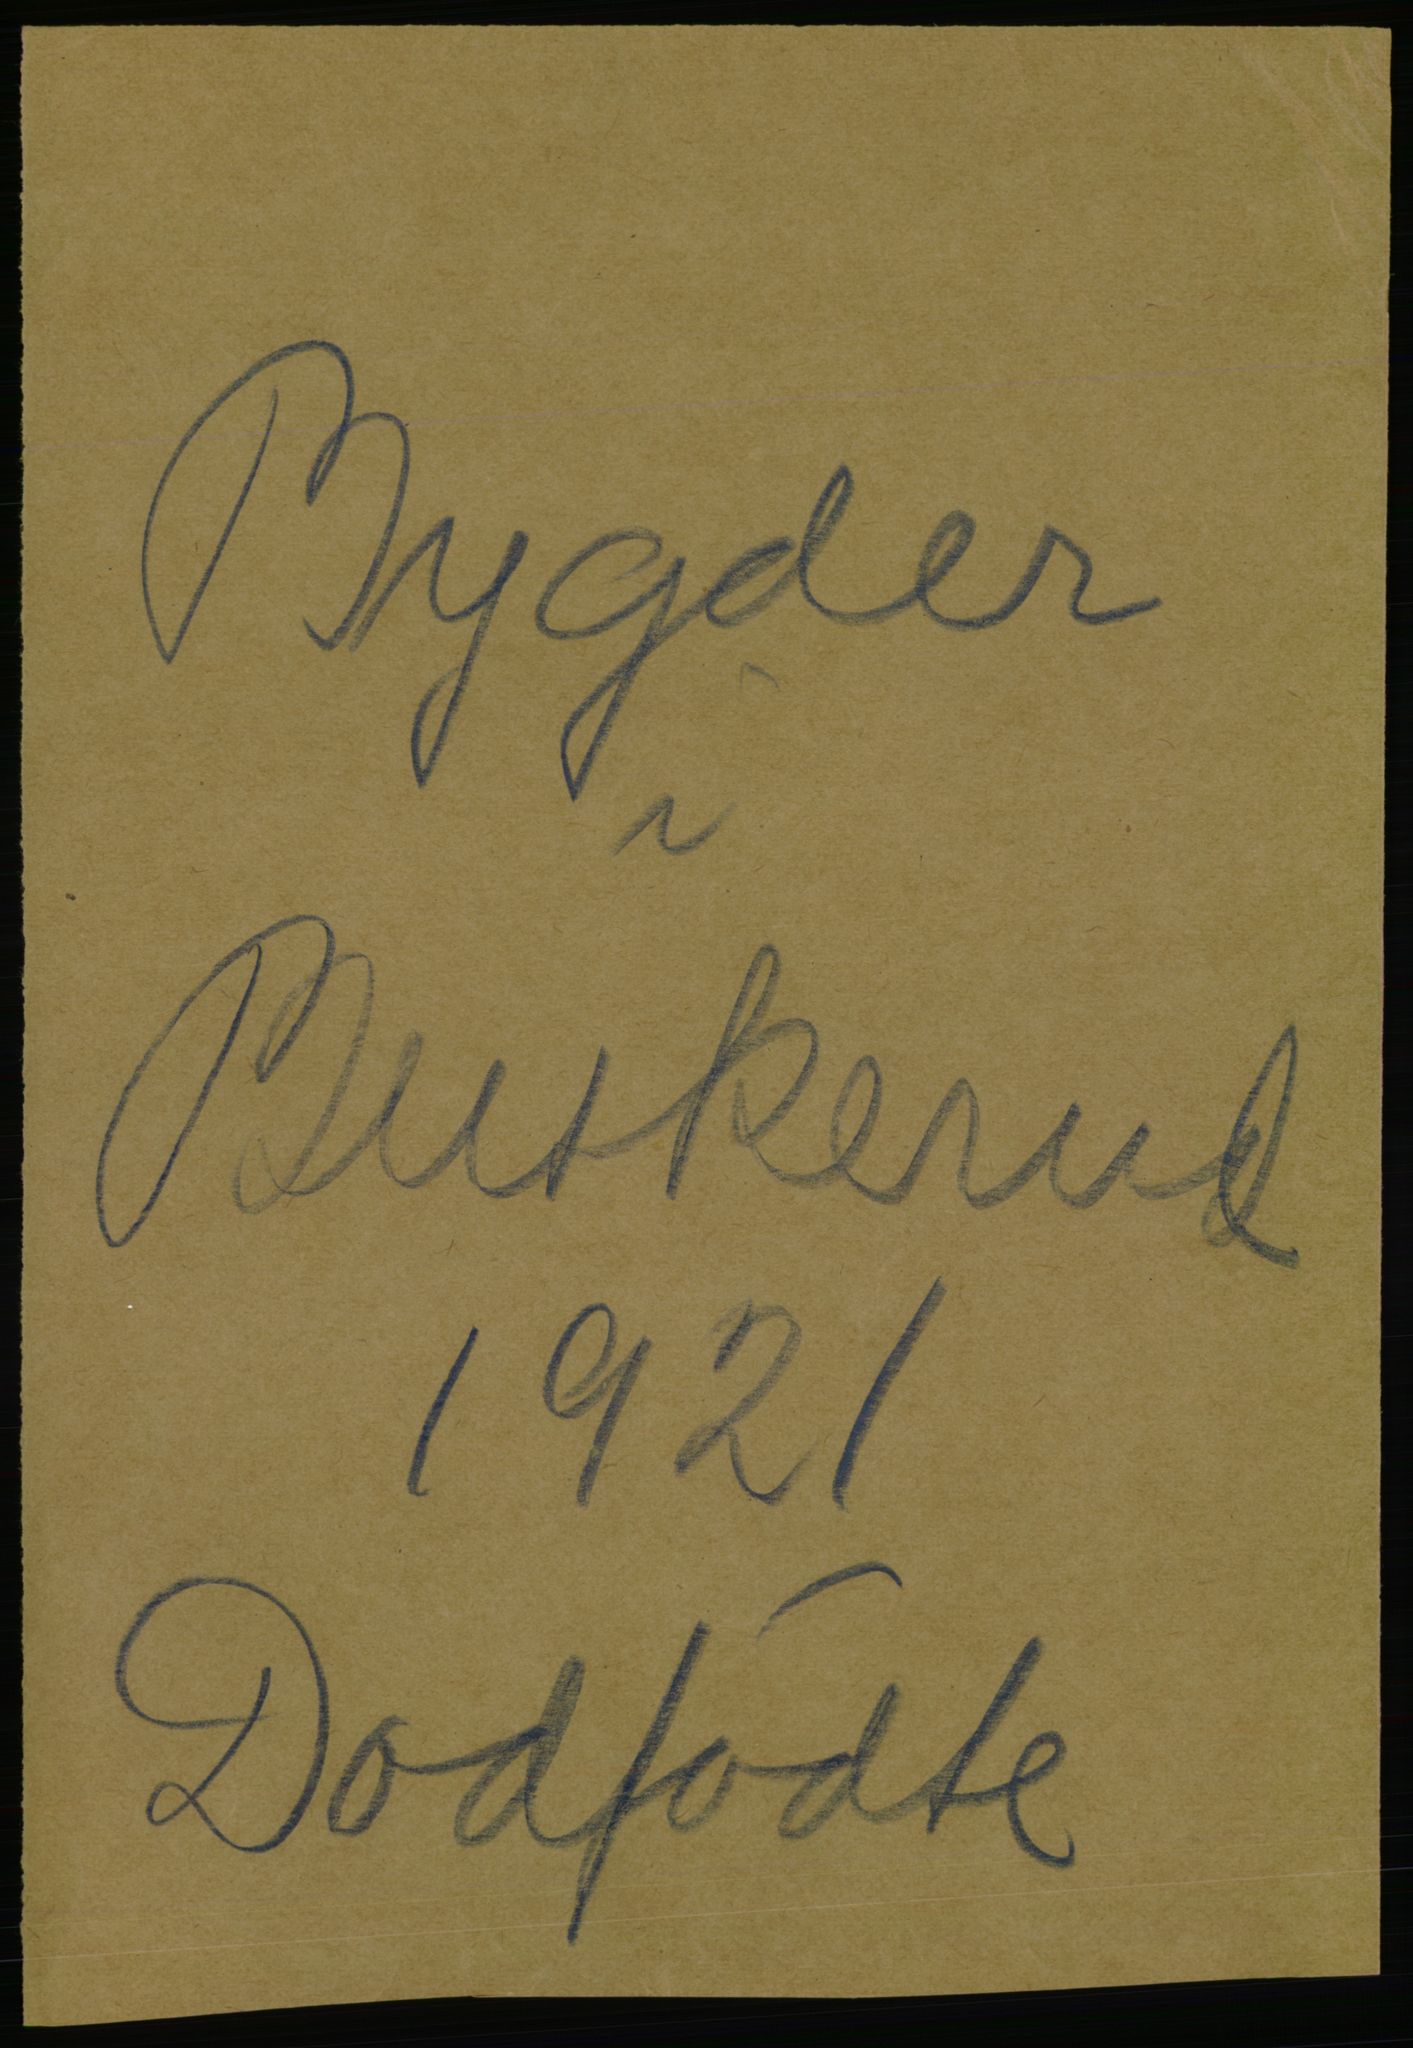 Bygder
i
Buskerud
1921
Dødfødte